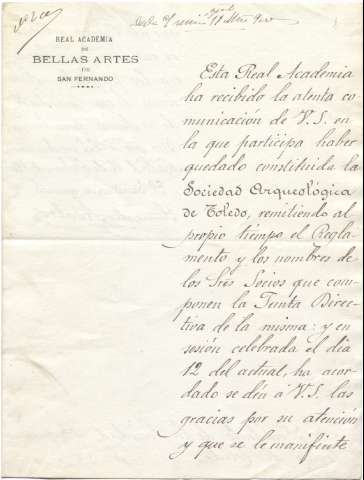 REAL ACADEMIA
DE
BELLAS ARTES
DE
SAN FERNANDO
Esta Real Academia
ha recibido la atenta co
municación de V.S. en
la que participa haber
quedado constituida la
Sociedad Arqueológica
de Toledo, remitiendo al
propio tiempo el Regla-
mento y los nombres de
los Sres Socios que com-
ponen la Junta Direc-
tiva de la misma: y en
sesión celebrada el dia
12 del actual, ha acor-
dado se dén á V.S. las
gracias por su atención
y que se le manifieste